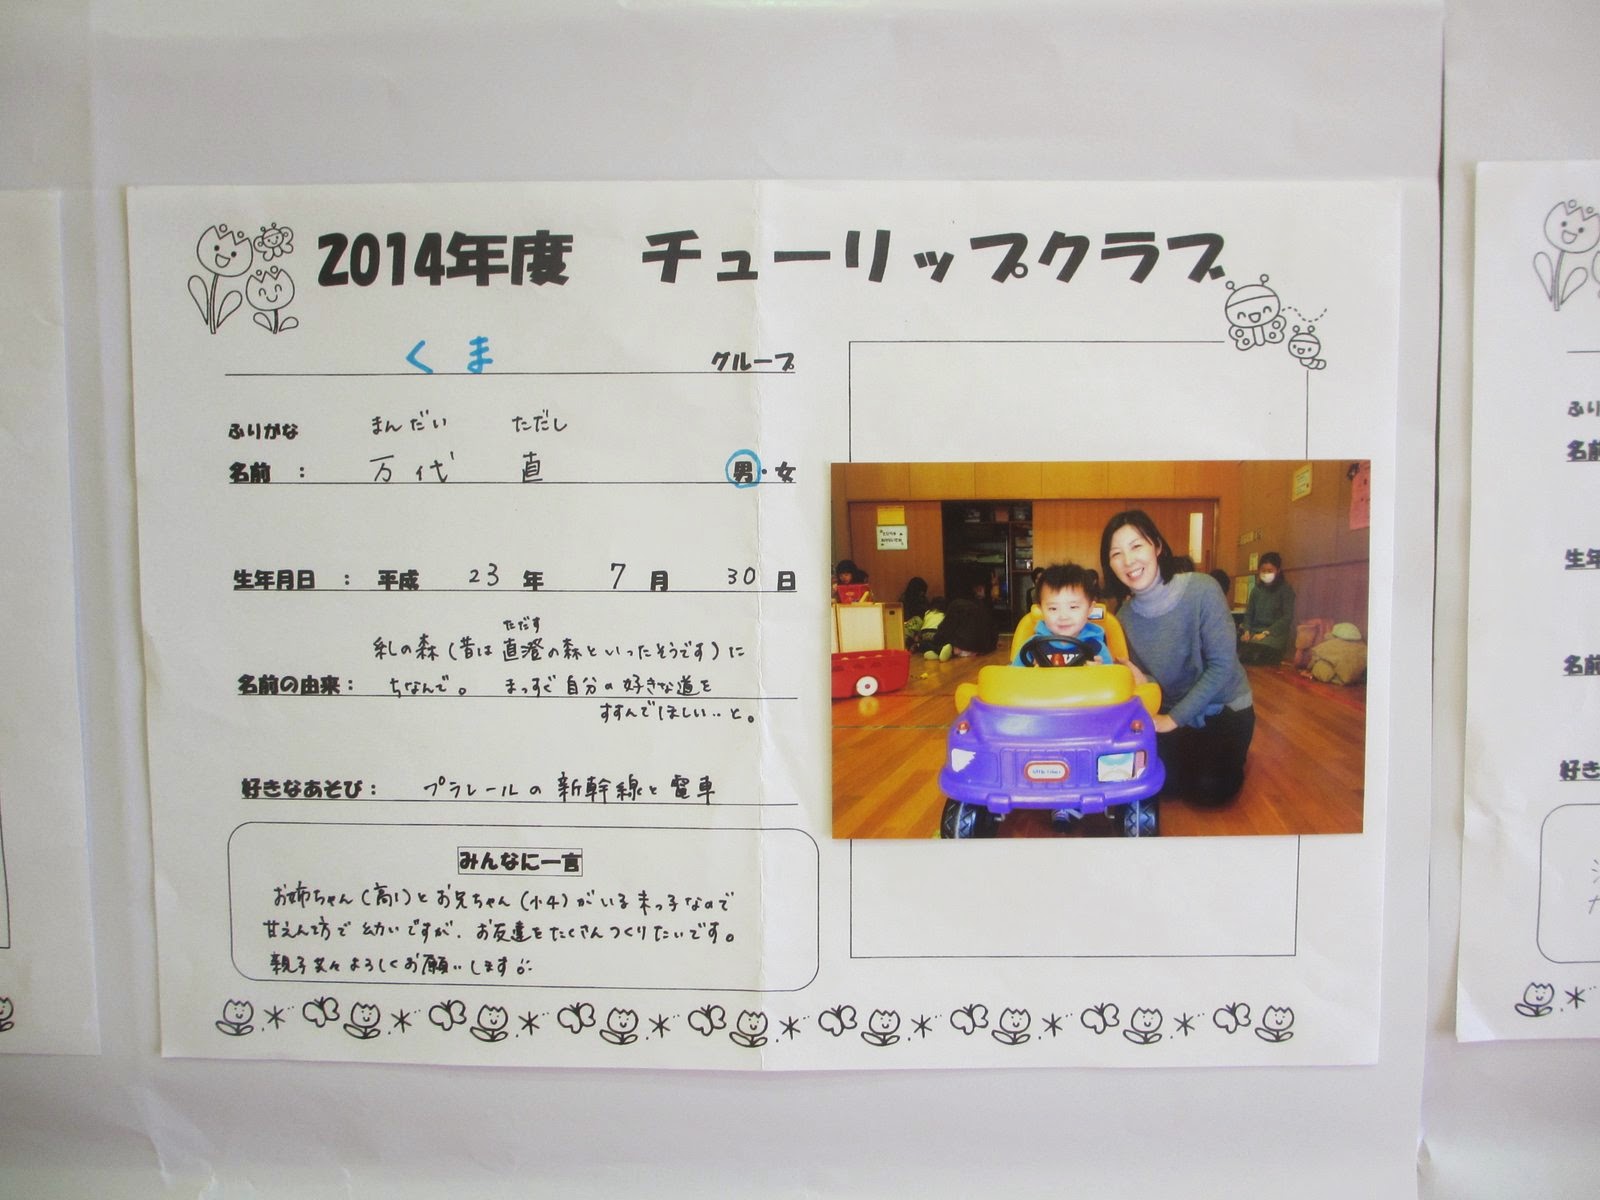 2014年度 チューリップクラブ
くま グループ
ふりがな まんだい ただし
名前 : 万代 直 男・女
生年月日 : 平成 23 年 7 月 30 日
ただす
糺の森(昔は直澄の森といったそうです)に
名前の由来: ちなんで。 まっすぐ自分の好きな道を
すすんでほしい‥と。
好きなあそび: プラレールの新幹線と電車
みんなに一言
お姉ちゃん(高1)とお兄ちゃん(小4)がいる末っ子なので
甘えん坊で幼いですが、お友達をたくさんつくりたいです。
親子共々よろしくお願いします
名前
生年
名前
好き